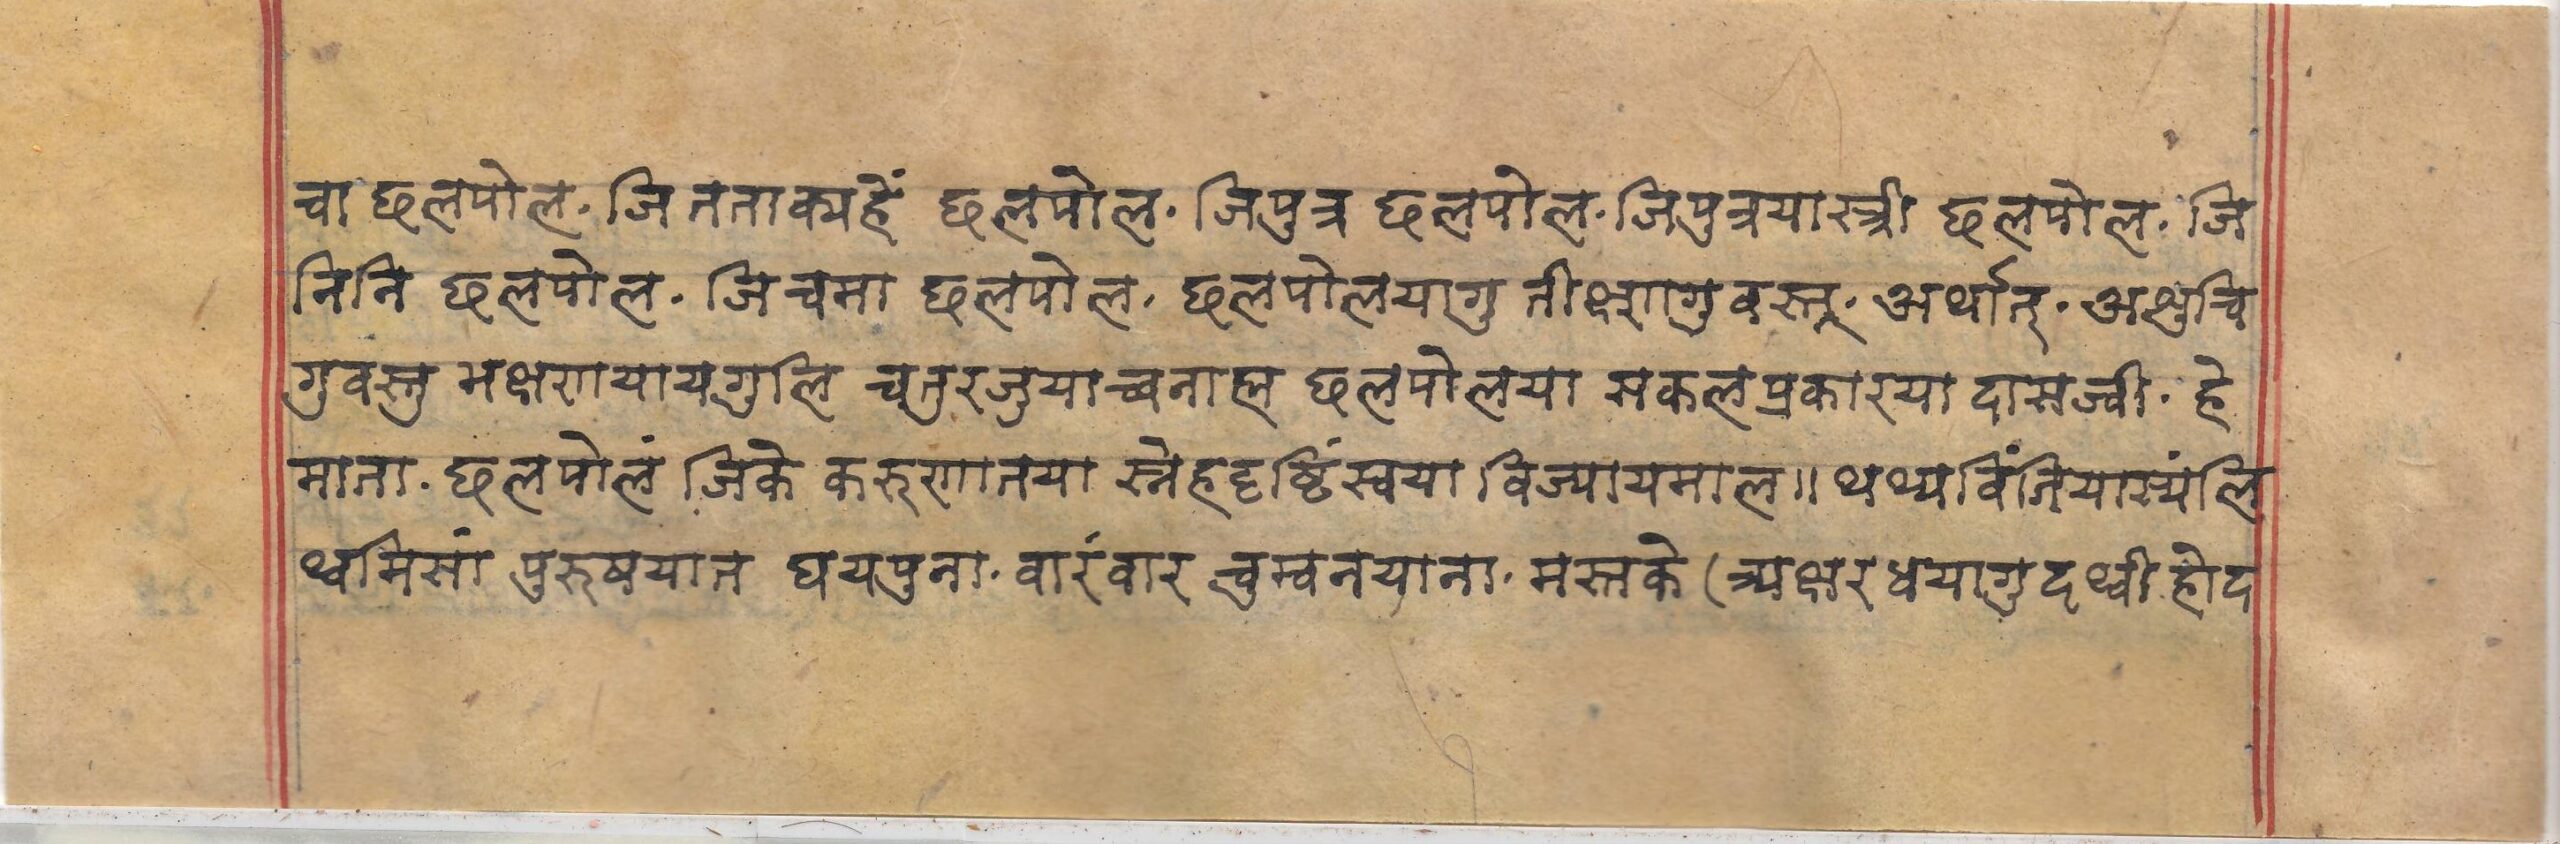 चा छलपोल. जि तताक्यहें छलपोल. जिपुत्र छलपोल. जिपुत्रयास्त्री छलपोल. जि
निनि छलपोल. जिचमा छलपोल. छलपोलयागु तीक्ष्णगु वस्तु. अर्थात्. अशुचि
गुवस्तु भक्षणयायगुलि चतुरजुयाच्वनाह्म छलपोलया सकलप्रकारया दासज्वी. हे
माता. छलपोलं जिके करुणातया स्नेहदृष्टिंस्वया विज्यायमाल॥ थथ्यविंतियास्यंलि
थ्वमिसां पुरुषयात घयपुना. वारंवार चुम्वनयाना. मस्तके (त्र्यक्षरधयागु दथ्वी होद